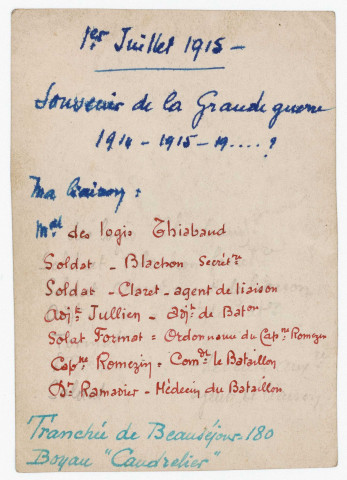 1er Juillet 1915 -
Souvenir de la Grande guerre
1914 - 1915 - 19....?
Ma liaison :
Mal des logis Thiabaud
Soldat - Blachon Secrétre
Soldat - Claret - agent de liaison
Adjt Jullien - adjt de Baton
Solat Format = Ordonnance du Capne Romezin
Capne Romezin = Comdt le Bataillon
Dr Ramadier - Médecin du Bataillon
Tranchée de Beauséjour 180
Boyau "Candrelier"